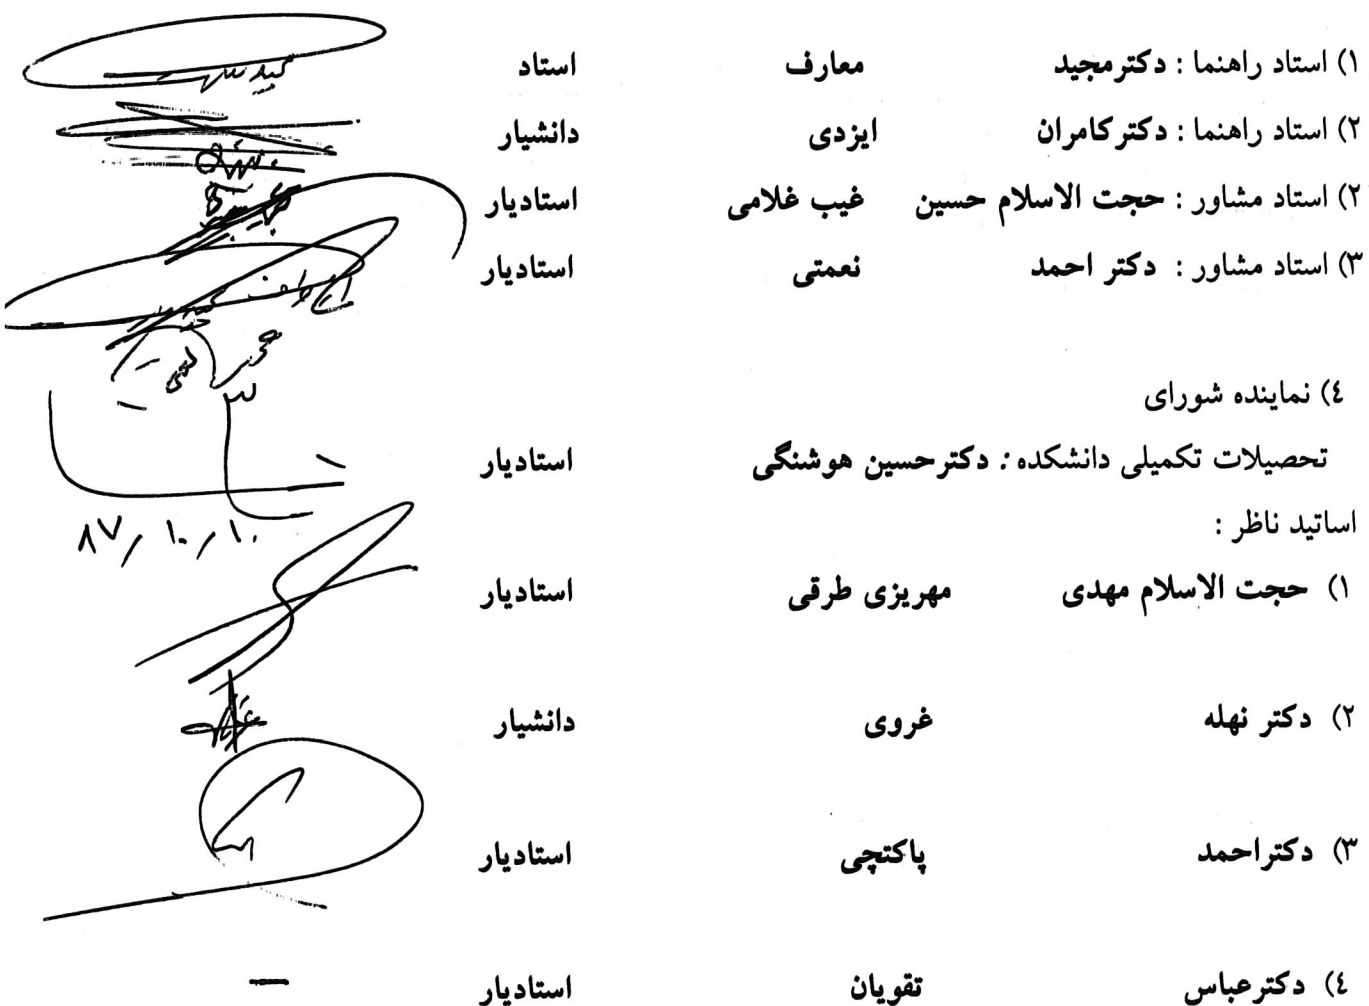 ۱) استاد راهنما : دکترمجید معارف استاد
۲) استاد راهنما : دکترکامران ایزدی دانشیار
۲) استاد مشاور : حجت الاسلام حسین غیب غلامی استادیار
۳) استاد مشاور : دکتر احمد نعمتی استادیار
٤) نماینده شورای
تحصیلات تکمیلی دانشکده : دکترحسین هوشنگی استادیار
۸۷/۱۰/۱۰
اساتید ناظر :
۱) حجت الاسلام مهدی مهریزی طرقی استادیار
۲) دکتر نهله غروی دانشیار
۳) دکتراحمد پاکتچی استادیار
٤) دکترعباس تقویان استادیار —